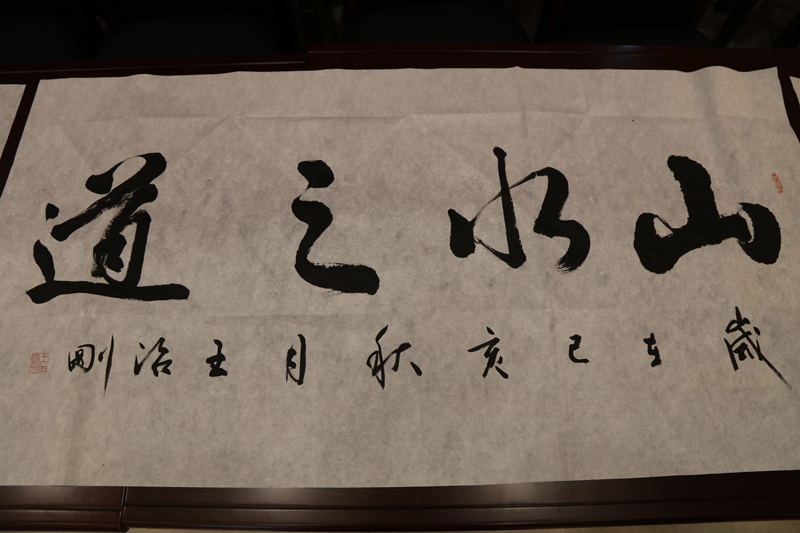 山水之道
歲在己亥秋月王治剛